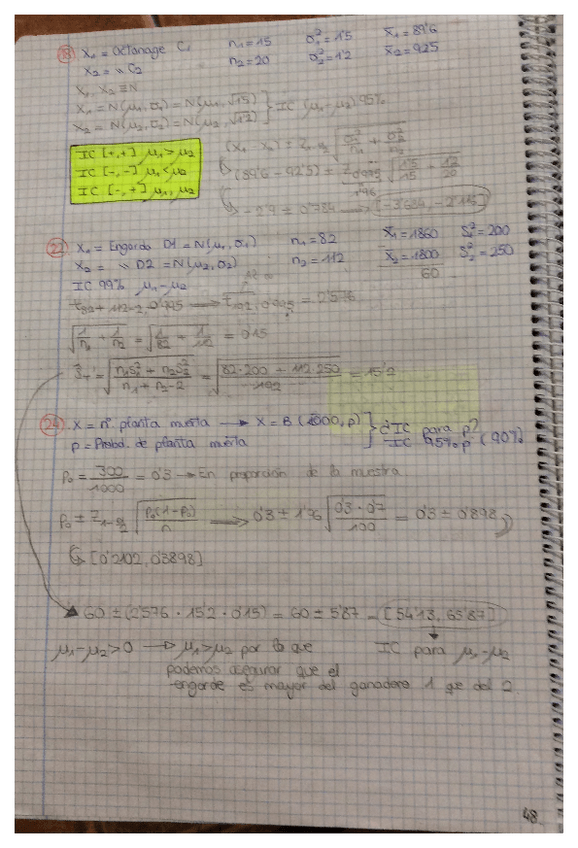 18 X₁ = Octanage C₁ n₁=15 σ₁²=1'5 x̄₁=89'6
X₂ = " C₂ n₂=20 σ₂²=1'2 x̄₂=92'5
X₁, X₂ ≡ N
X₁ = N(μ₁, σ₁) = N(μ₁, √1'5) } IC (μ₁-μ₂) 95%
X₂ = N(μ₂, σ₂) = N(μ₂, √1'2)
IC [+,+] μ₁>μ₂
IC [-,-] μ₁<μ₂
IC [-,+] μ₁, μ₂
(x̄₁-x̄₂) ± Z₁₋α/2 √(σ₁²/n₁ + σ₂²/n₂)
(89'6-92'5) ± Z0'975 √(1'5/15 + 1'2/20)
1'96
-2'9 ± 0'784 → [-3'684, -2'116]
22 X₁ = Engorda D1 = N(μ₁, σ₁) n₁=82 x̄₁=1860 S₁²=200
X₂ = " D2 = N(μ₂, σ₂) n₂=112 x̄₂=1800 S₂²=250
60
IC 99% μ₁-μ₂
t82+112-2, 0'995 → t192, 0'995 = 2'576
√(1/n₁ + 1/n₂) = √(1/82 + 1/112) = 0'15
= √((n₁S₁² + n₂S₂²)/(n₁+n₂-2)) = √((82·200 + 112·250)/192) = 15'2
24 X = nº. planta muerta → X = B(1000, p) } ¿IC para p?
p = Probab. de planta muerta IC 95% p (90%)
P₀ = 300/1000 = 0'3 → En proporción de la muestra
P₀ ± Z₁₋α/2 √(P₀(1-P₀)/n) → 0'3 ± 1'96 √(0'3·0'7/100) = 0'3 ± 0'898
[0'2102, 0'3898]
60 ± (2'576 · 15'2 · 0'15) = 60 ± 5'87 = [54'13, 65'87]
μ₁-μ₂>0 → μ₁>μ₂ por lo que IC para μ₁-μ₂
podemos asegurar que el
engorde es mayor del ganadero 1 que del 2
48